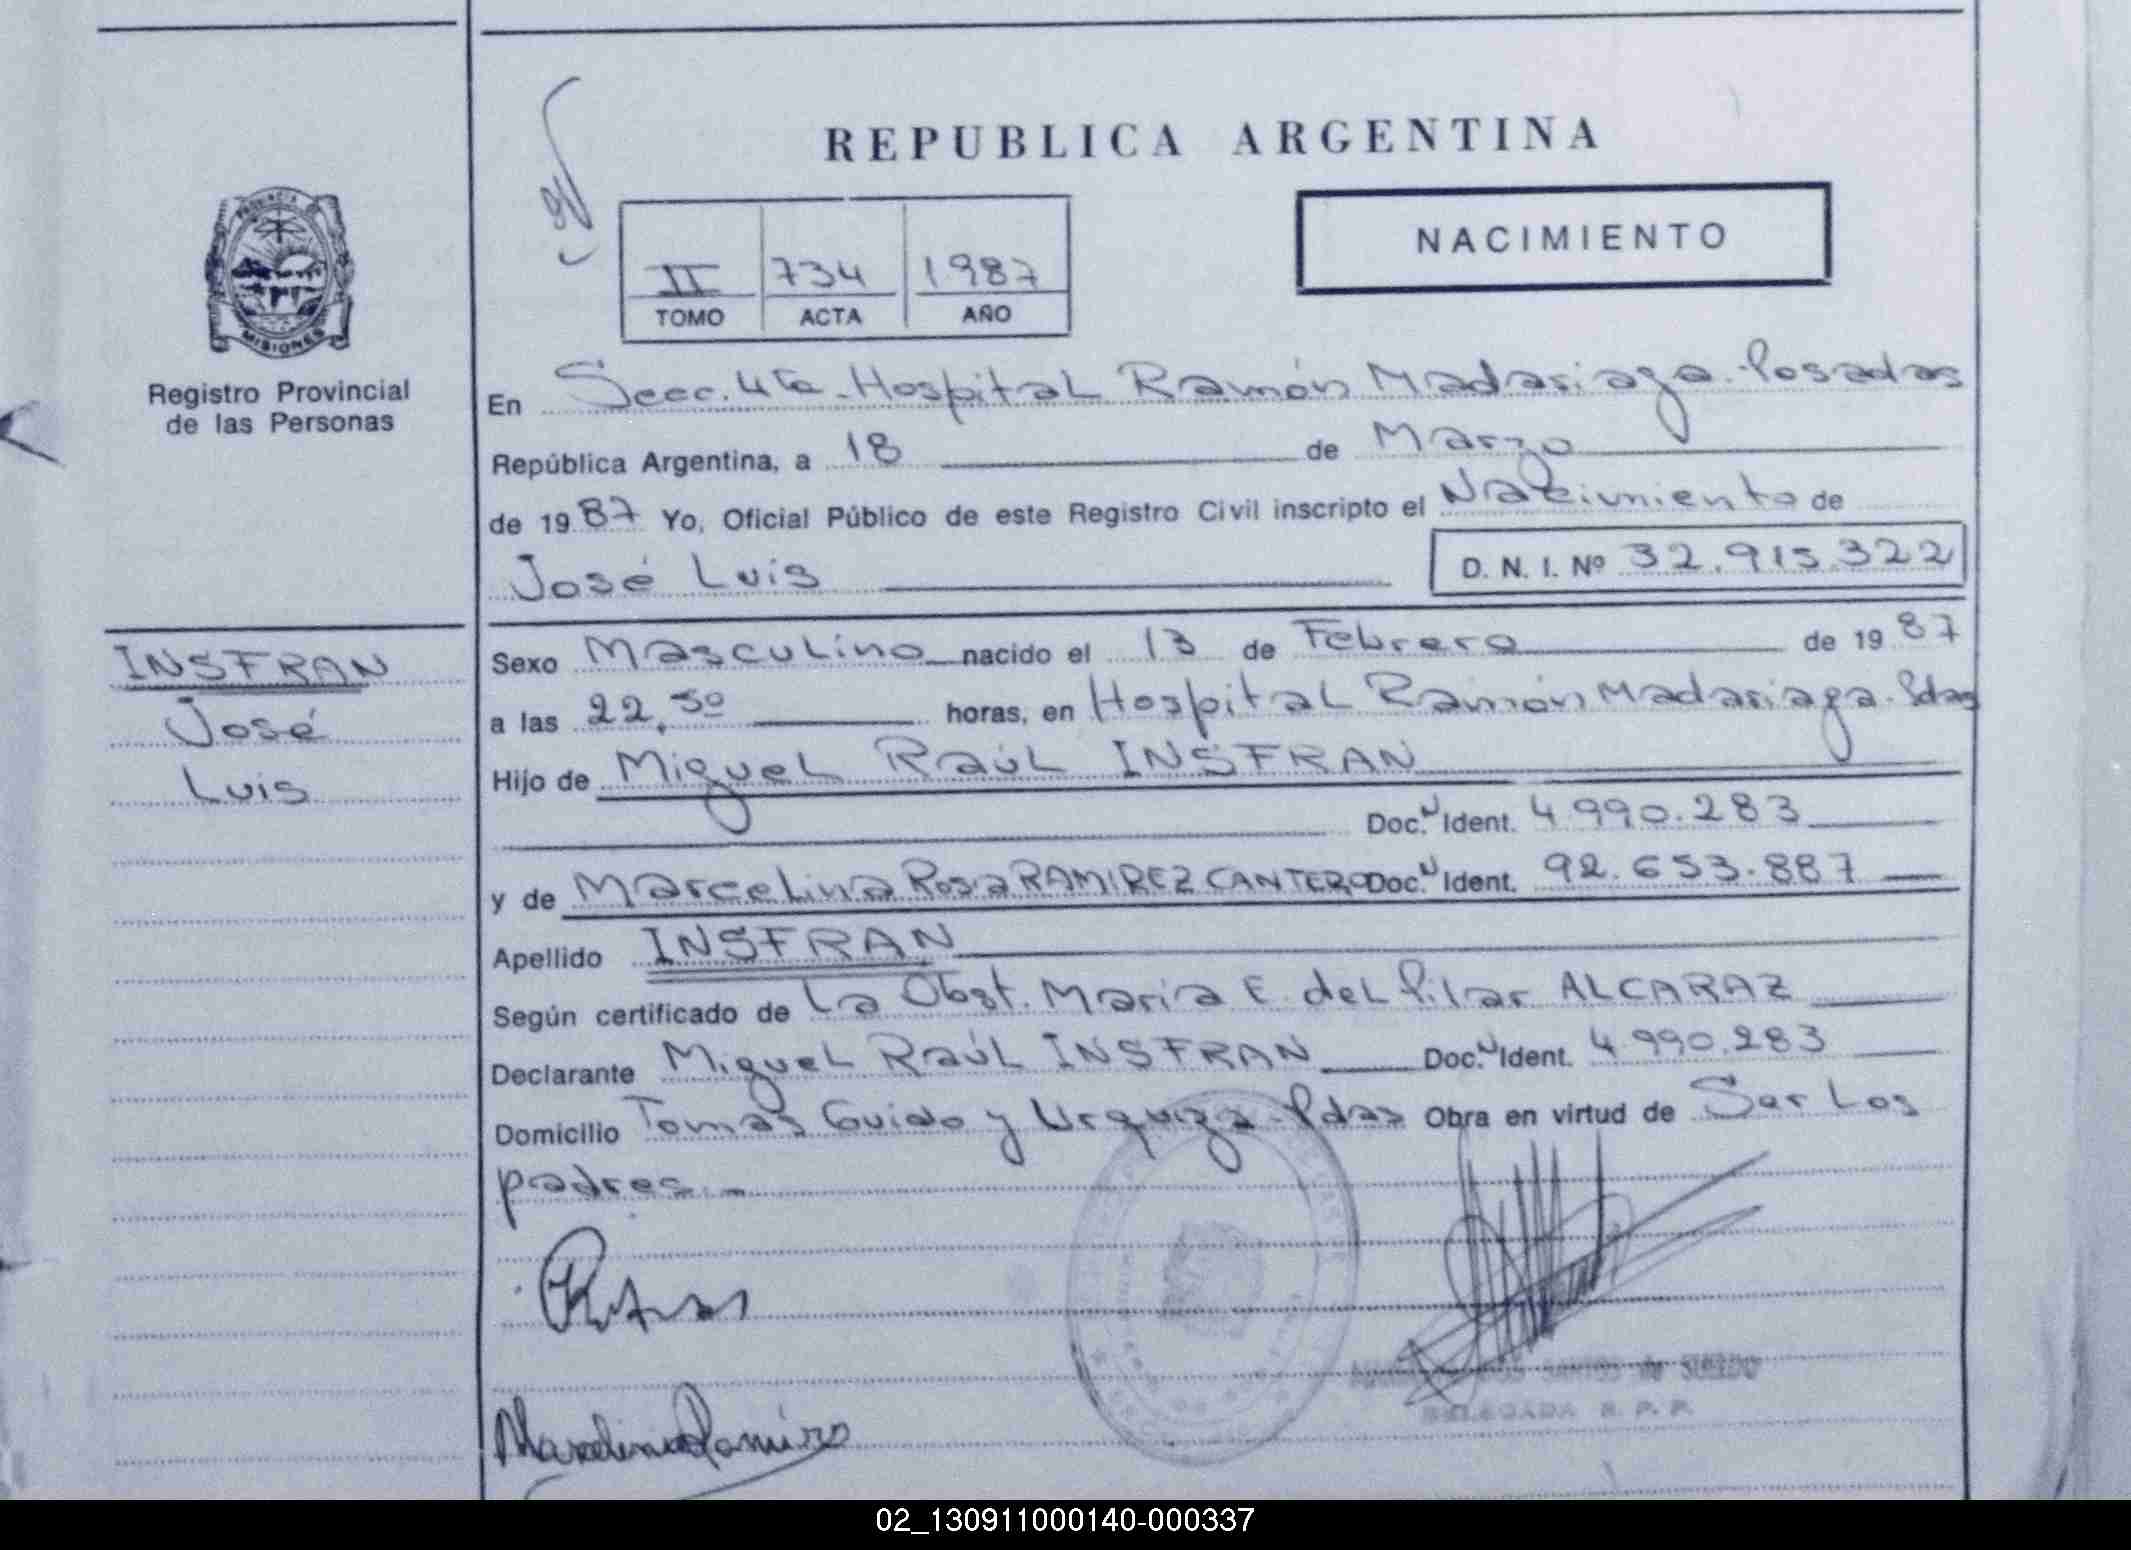 REPUBLICA ARGENTINA
NACIMIENTO
II 734 1987
TOMO ACTA AÑO
PROVINCIA DE
MISIONES
Registro Provincial
de las Personas
En Secc. 4ta - Hospital Ramón Madariaga - Posadas
República Argentina, a 18 de Marzo
de 1987 Yo, Oficial Público de este Registro Civil inscripto el Nacimiento de
José Luis D. N. I. Nº 32.915.322
INSFRAN
José
Luis
Sexo Masculino nacido el 13 de Febrero de 1987
a las 22,30 horas, en Hospital Ramón Madariaga - Pdas
Hijo de Miguel Raúl INSFRAN
Doc. N Ident. 4990.283
y de Marcelina Rosa RAMIREZ CANTERO Doc. N Ident. 92.653.887
Apellido INSFRAN
Según certificado de La Obst. María E. del Pilar ALCARAZ
Declarante Miguel Raúl INSFRAN Doc. N Ident. 4990.283
Domicilio Tomás Guido y Urquiza - Pdas Obra en virtud de Ser Los
padres.-
Marcelina Ramirez
DELEGADA R. P. P.
02_130911000140-000337